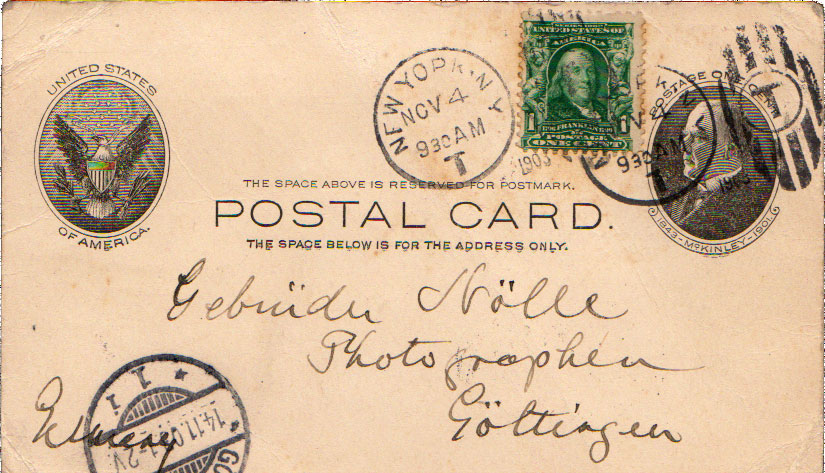 UNITED STATES
OF AMERICA.
NEW YORK, N.Y.
NOV 4
930 AM
T
1903
SERIES 1902
UNITED STATES OF
AMERICA
1 1
FRANKLIN
POSTAGE
ONE CENT
V 4
930 AM
T
1903
T
POSTAGE ONE CENT
1843 - McKINLEY - 1901
THE SPACE ABOVE IS RESERVED FOR POSTMARK.
POSTAL CARD.
THE SPACE BELOW IS FOR THE ADDRESS ONLY.
Gebrüder Nölle
Photographen
Göttingen
Germany
* 1 1
14.11.0
1-2V
GÖ